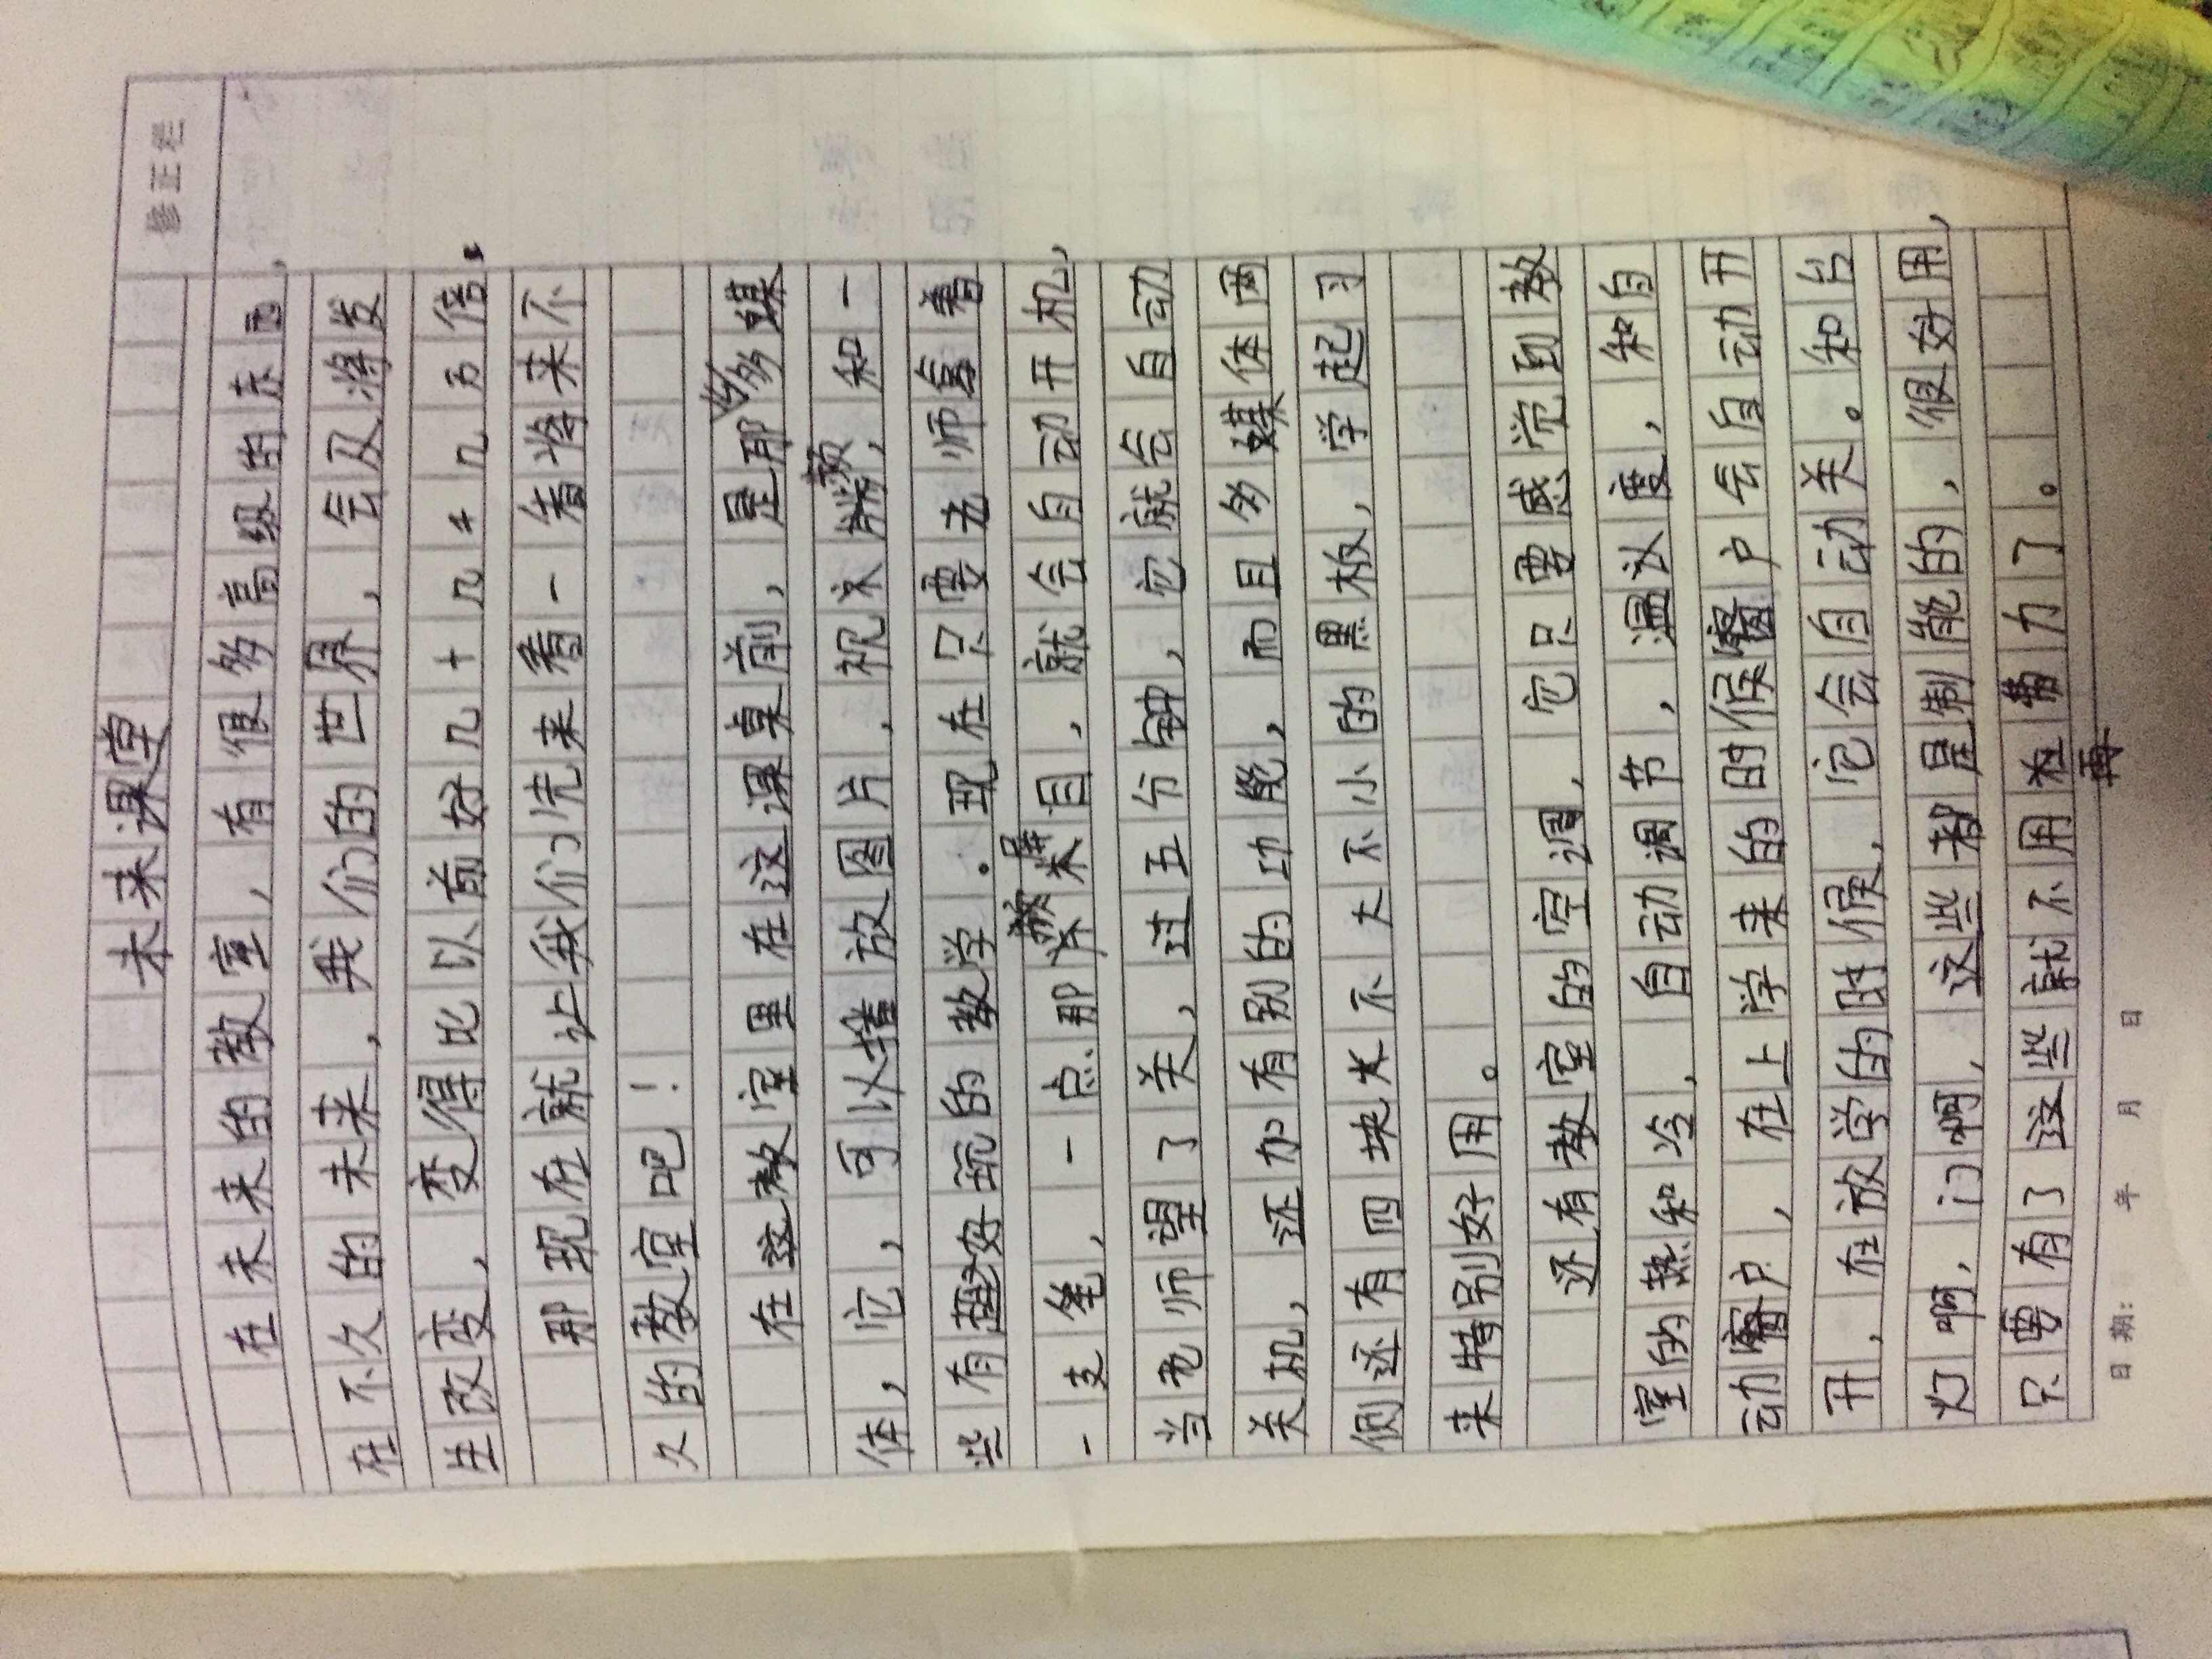 修正栏
未来课堂
在未来的教室，有很多高级的东西，
在不久的未来，我们的世界，会又将发
生改变，变得比以前好几十几千几万倍。
那现在就让我们先来看一看将来不
久的教室吧！
在这教室里在这课桌前，是那的多媒
体，它，可以播放图片，视频，和一
些有趣好玩的教学。现在只要老师拿着
一支笔，一点那屏幕目，就会自动开机，
当老师望了关，过五分钟，它就会自动
关机，还加有别的功能，而且多媒体两
侧还有四块米不大不小的黑板，学起习
来特别好用。
还有教室的空调，它只要感觉到教
室的热和冷，自动调节，温议度，和自
动窗户，在上学来的时候窗户会自动开
开，在放学的时候，它会自动关。和台
灯啊，门啊，这些都是制能的，很好用，
只要有了这些就不用再费力了。
日期： 年 月 日